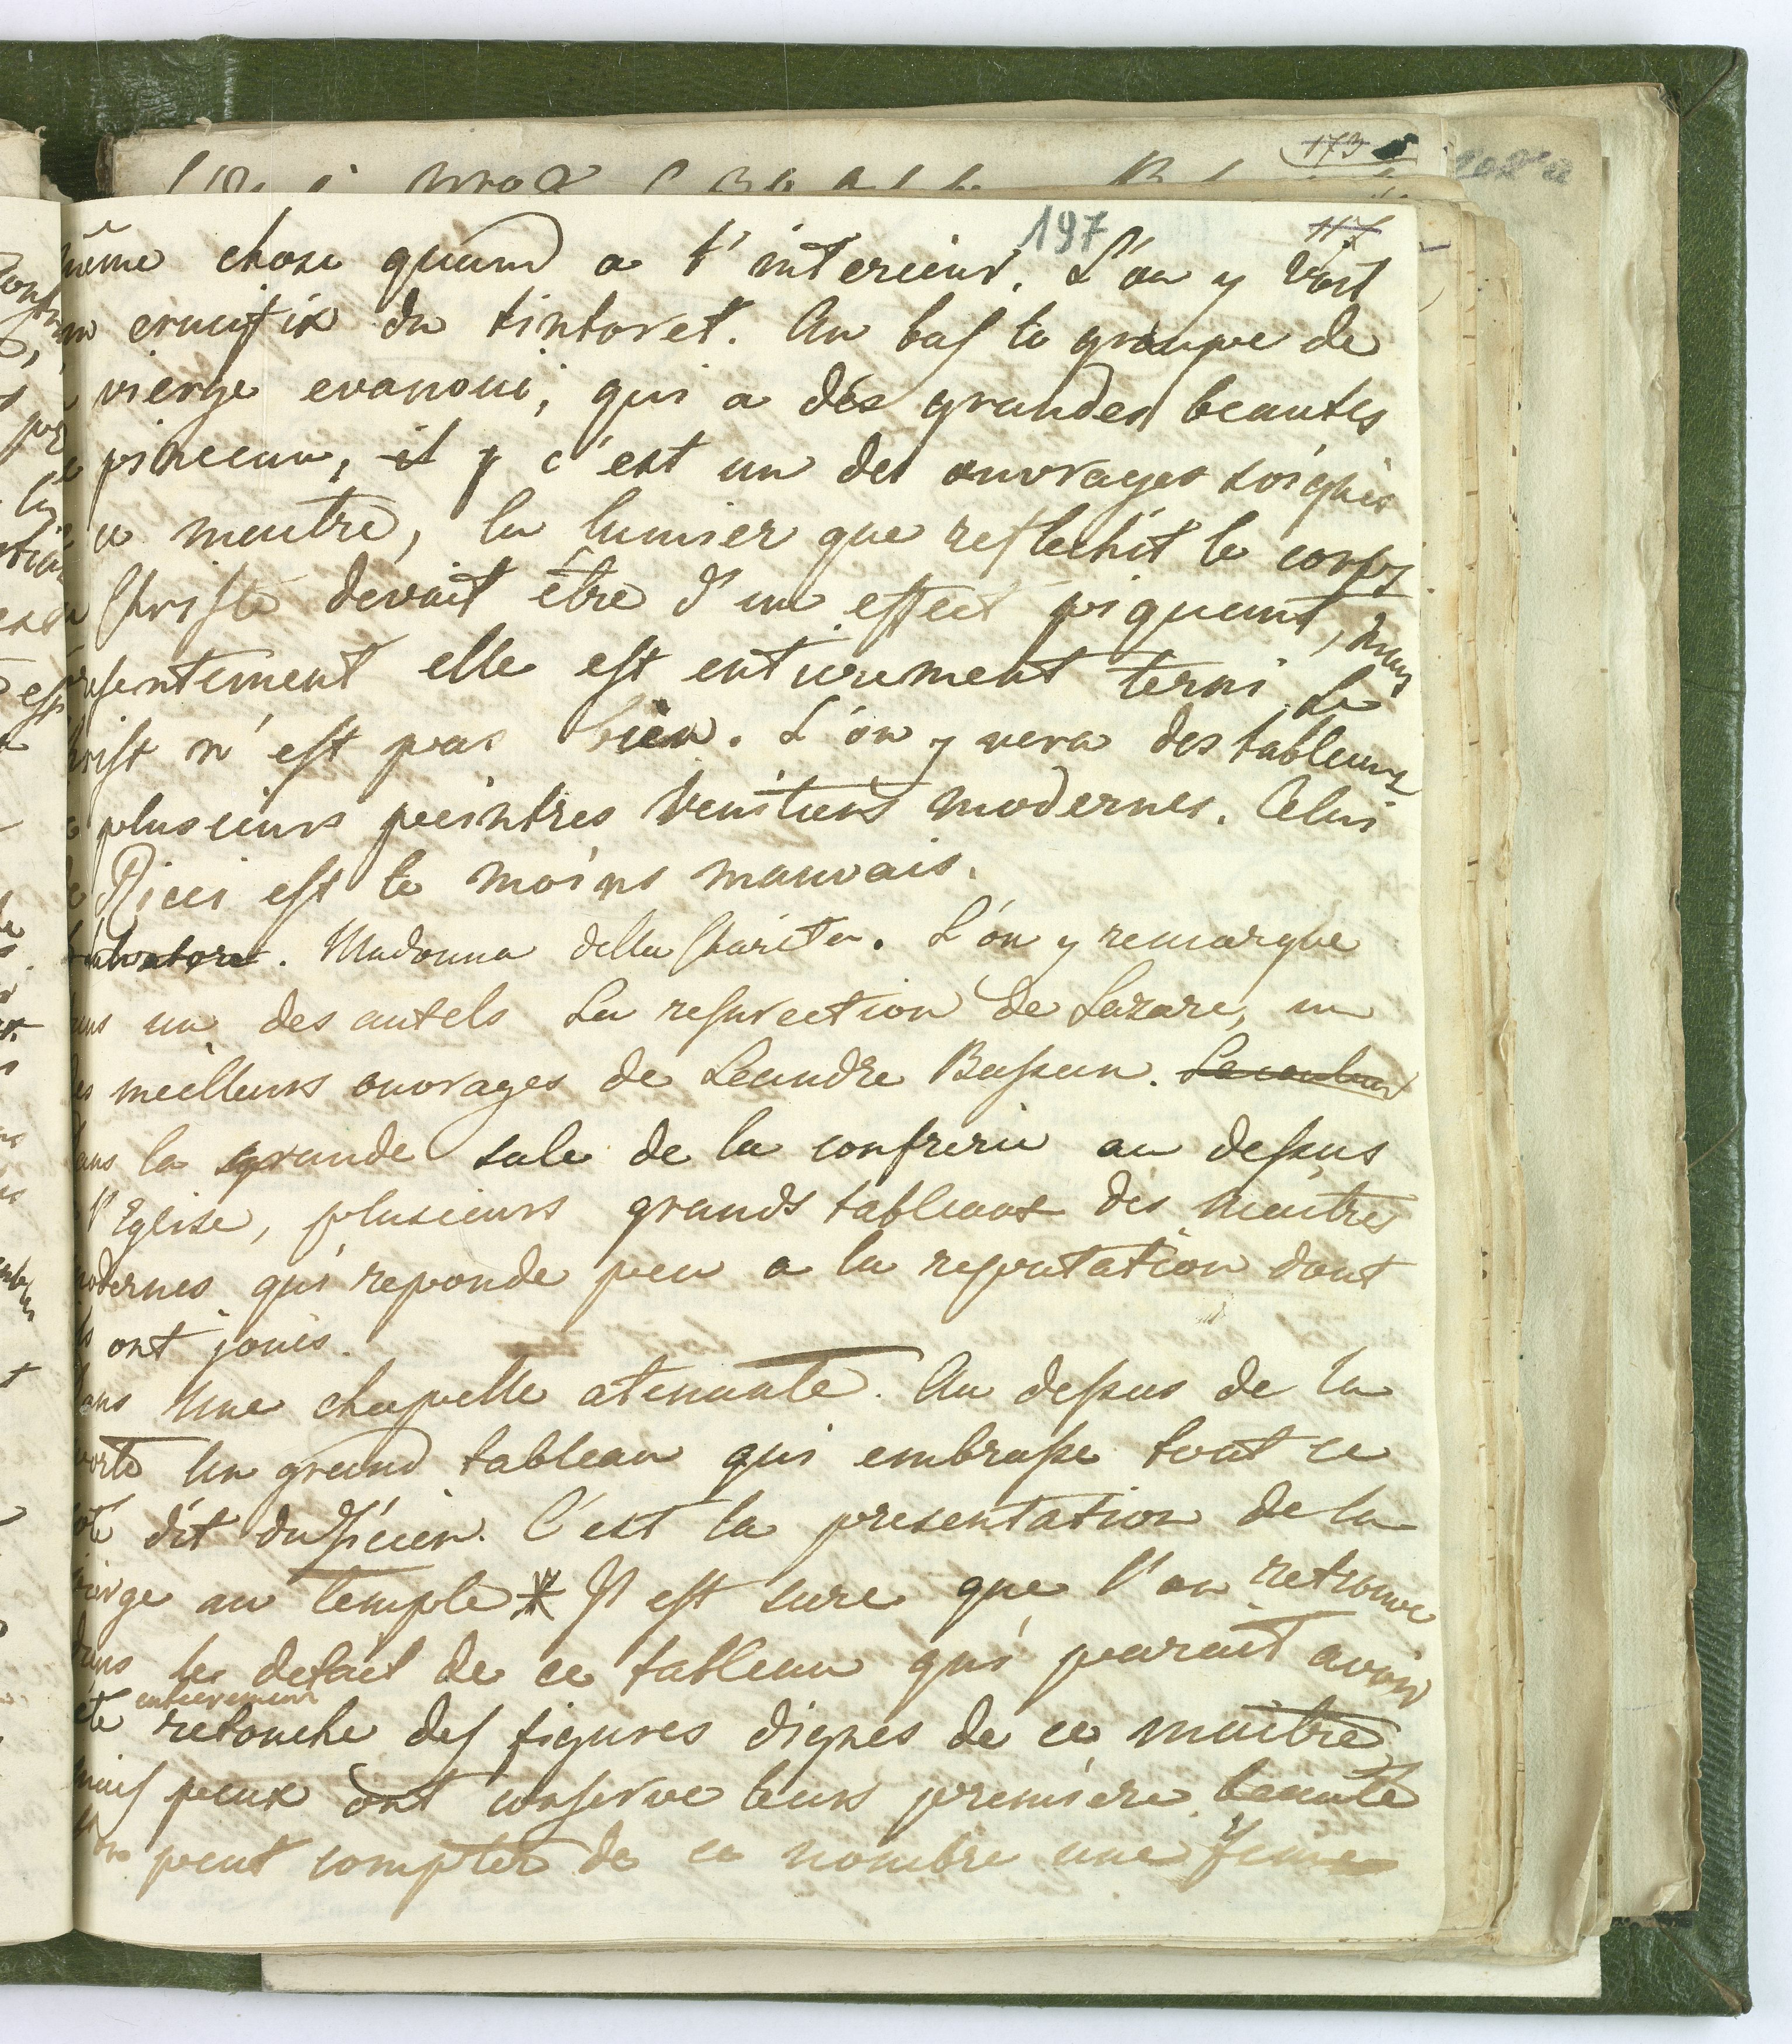 197
même chose quand a l'interieur. L'on y voit
crucifix du tintoret. Au bas le groupe de
vierge evanoui, qui a des grandes beautes
pinceau, il y c'est un des ouvrages soignés
maitre, la lumier que reflechit le corps
Christe devait être d'un effect piquant, mais
presentement elle est entierement terni. Le
Christ n'est pas bien. L'on y vera des tableaux
plusieurs peintres Venitiens modernes. Celui
Ricci est le moins mauvais.
Salvatore. Madonna della Charita. L'on y remarque
un des autels La resurection de Lazare, un
meilleurs ouvrages de Leandre Bassan.
dans la grande sale de la confrerie au dessus
l'Eglise, plusieurs grands tableaux des maitres
modernes qui reponde peu a la reputation dont
ils ont jouis.
dans Une chapelle atenante. Au dessus de la
porte Un grand tableau qui embrasse tout ce
coté dit du Ticien. C'est la presentation de la
vierge au temple * Il est sure que l'on retrouve
dans les detail de ce tableau qui parait avoir
entierement
été retouche des figures dignes de ce maitre
mais peux ont conserve leurs première beauté
peut compter de ce nombre une